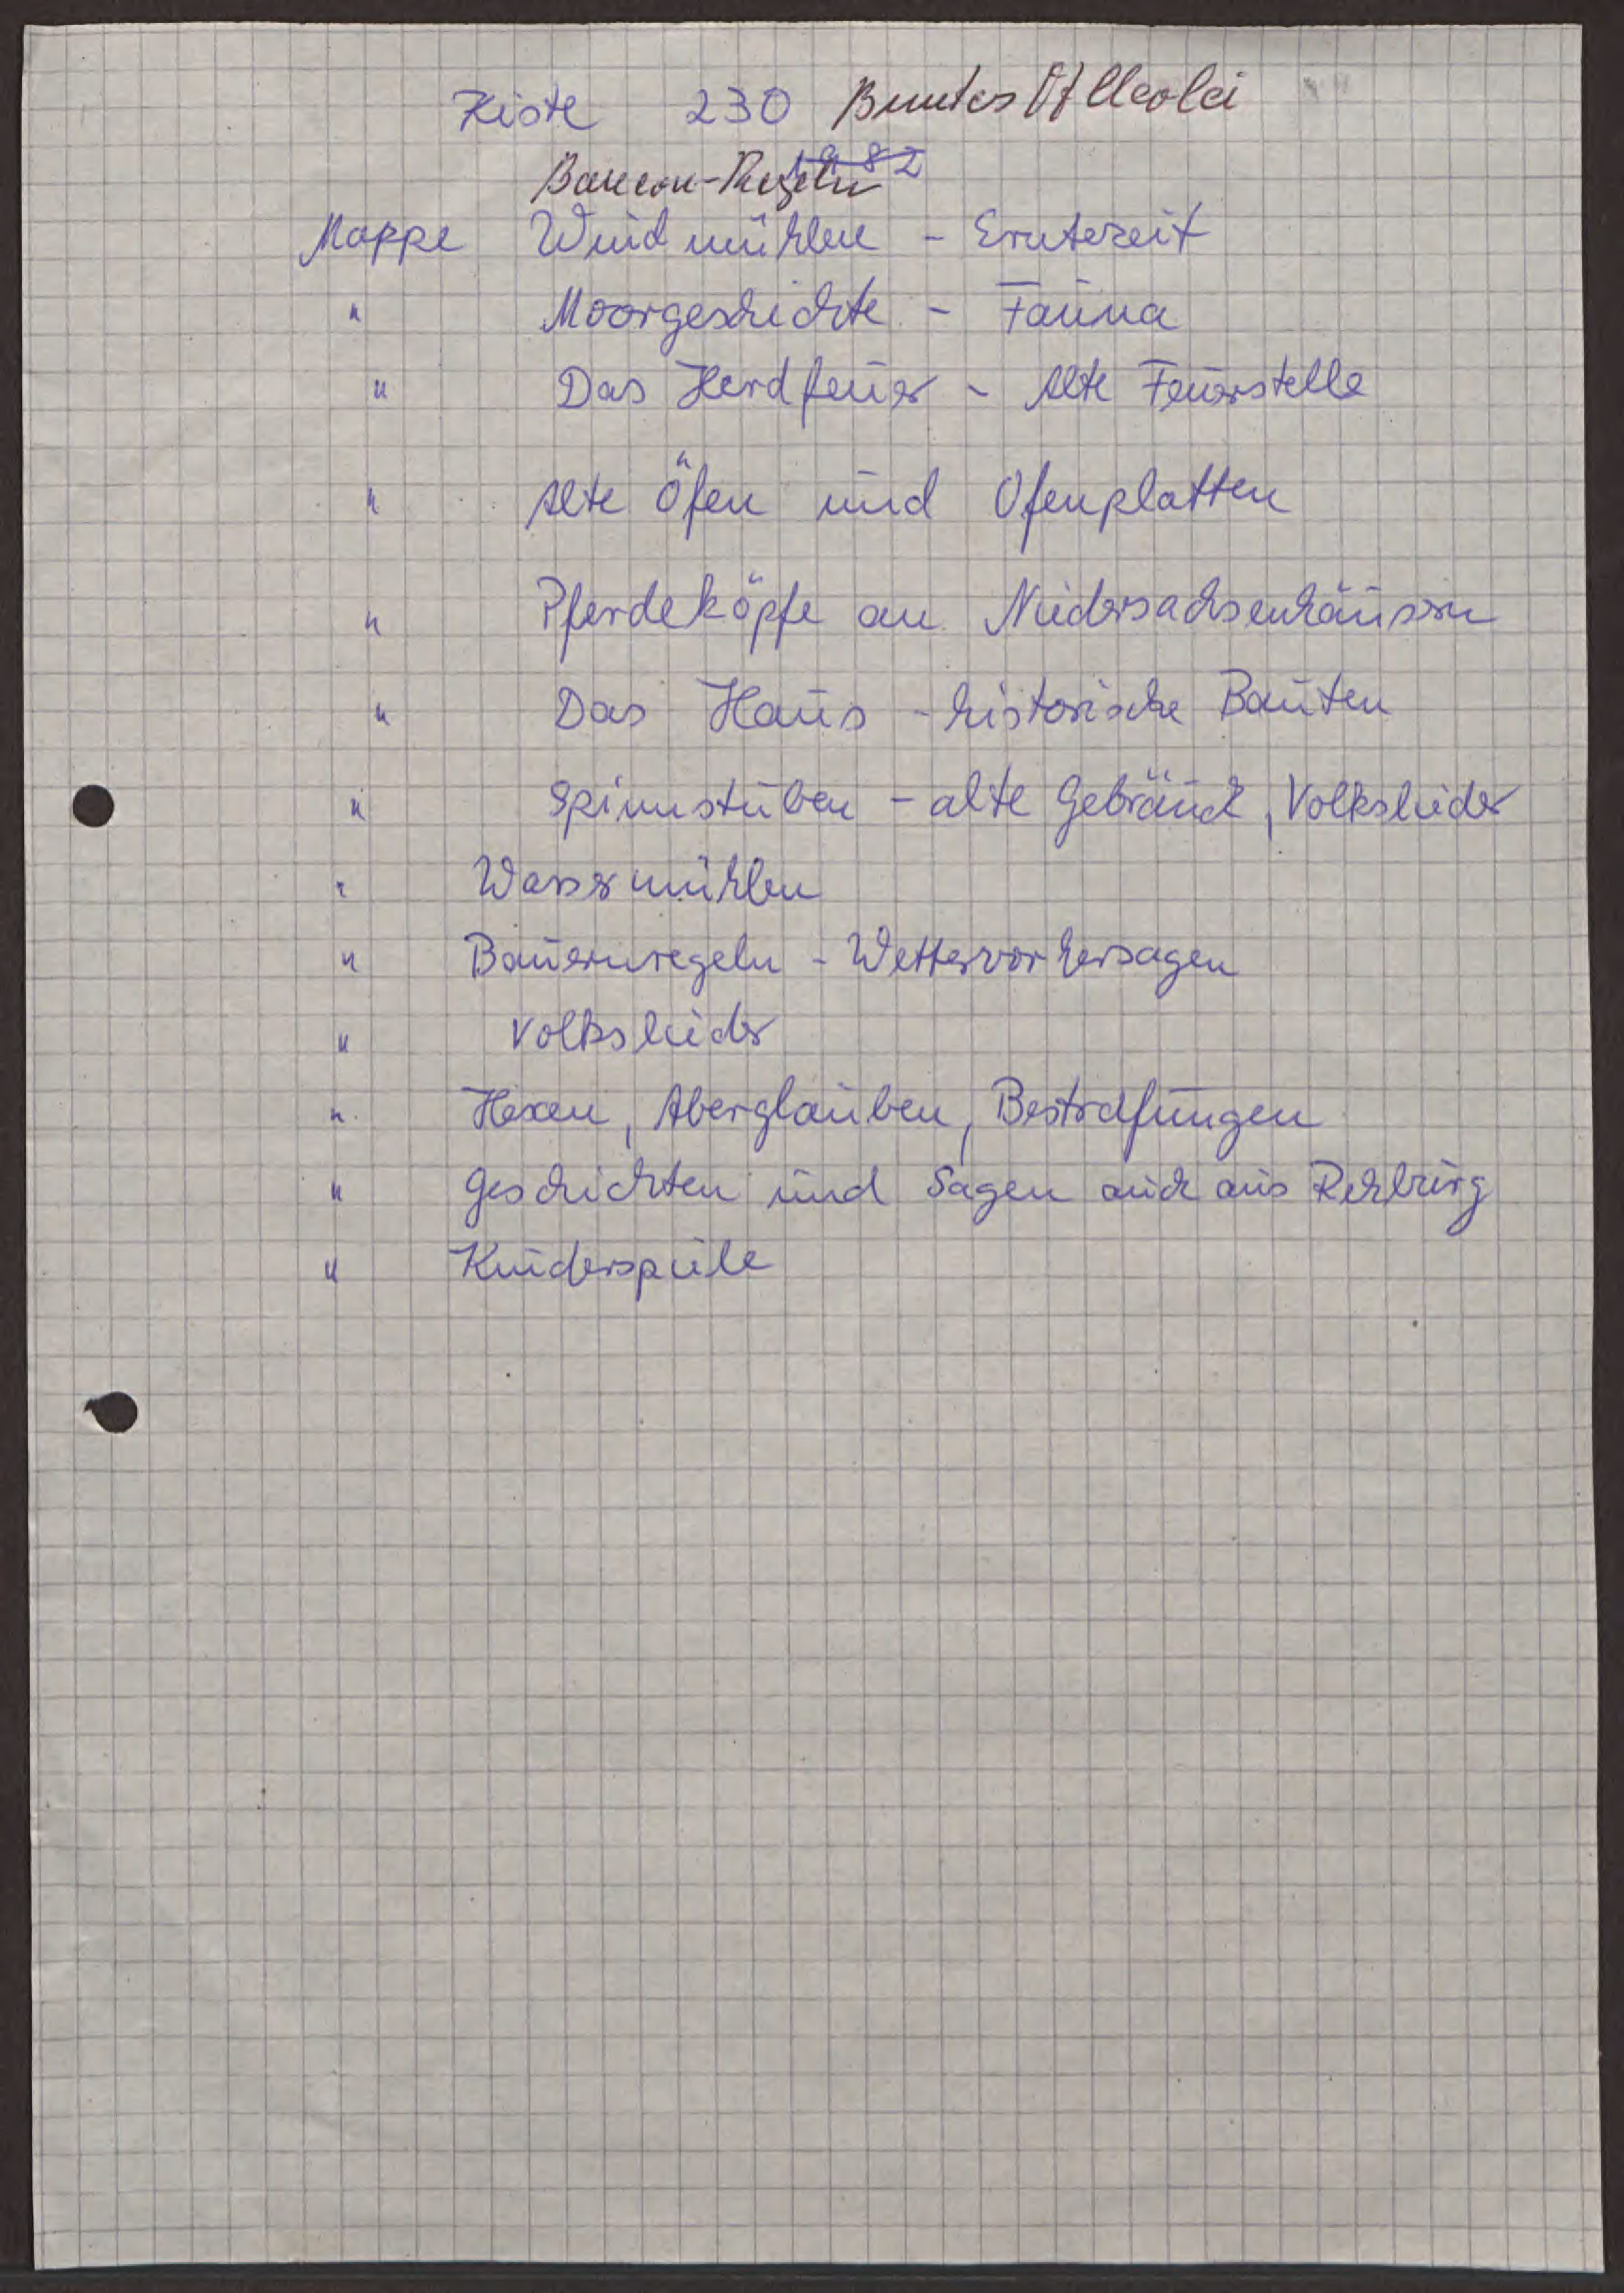 Kiste 230 Buntes Allerlei
Bauern-Regeln 1982
Mappe Windmühlen - Erntezeit
" Moorgeschichte - Fauna
" Das Herdfeuer - Alte Feuerstelle
" Alte Öfen und Ofenplatten
" Pferdeköpfe an Niedersachsenhäusern
" Das Haus - historische Bauten
" Spinnstuben - alte Gebräuch, Volkslieder
" Wassermühlen
" Bauernregeln - Wettervorhersagen
" Volkslieder
" Hexen, Aberglauben, Bestrafungen
" Geschichten und Sagen auch aus Rehburg
" Kinderspiele